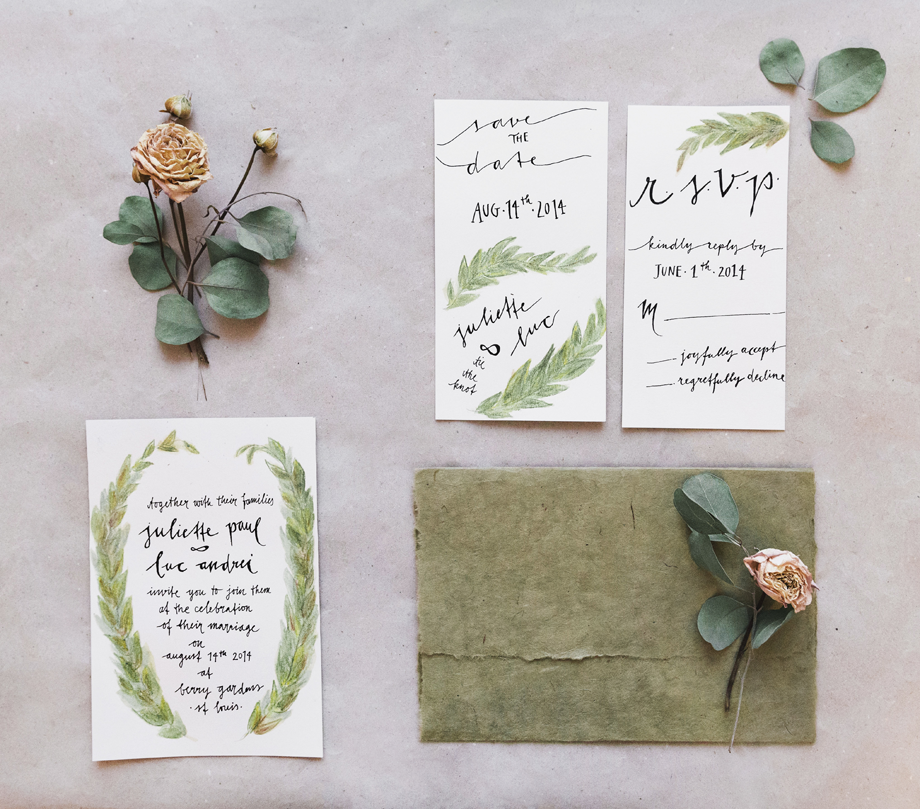 save
THE
date
AUG · 14th · 2014
juliette
& luc
tie
the
knot
r.s.v.p.
kindly reply by
JUNE · 1th · 2014
M
joyfully accept
regretfully decline
together with their families
juliette paul
&
luc andrei
invite you to join them
at the celebration
of their marriage
on
august 14th 2014
at
berry gardens
· st louis ·